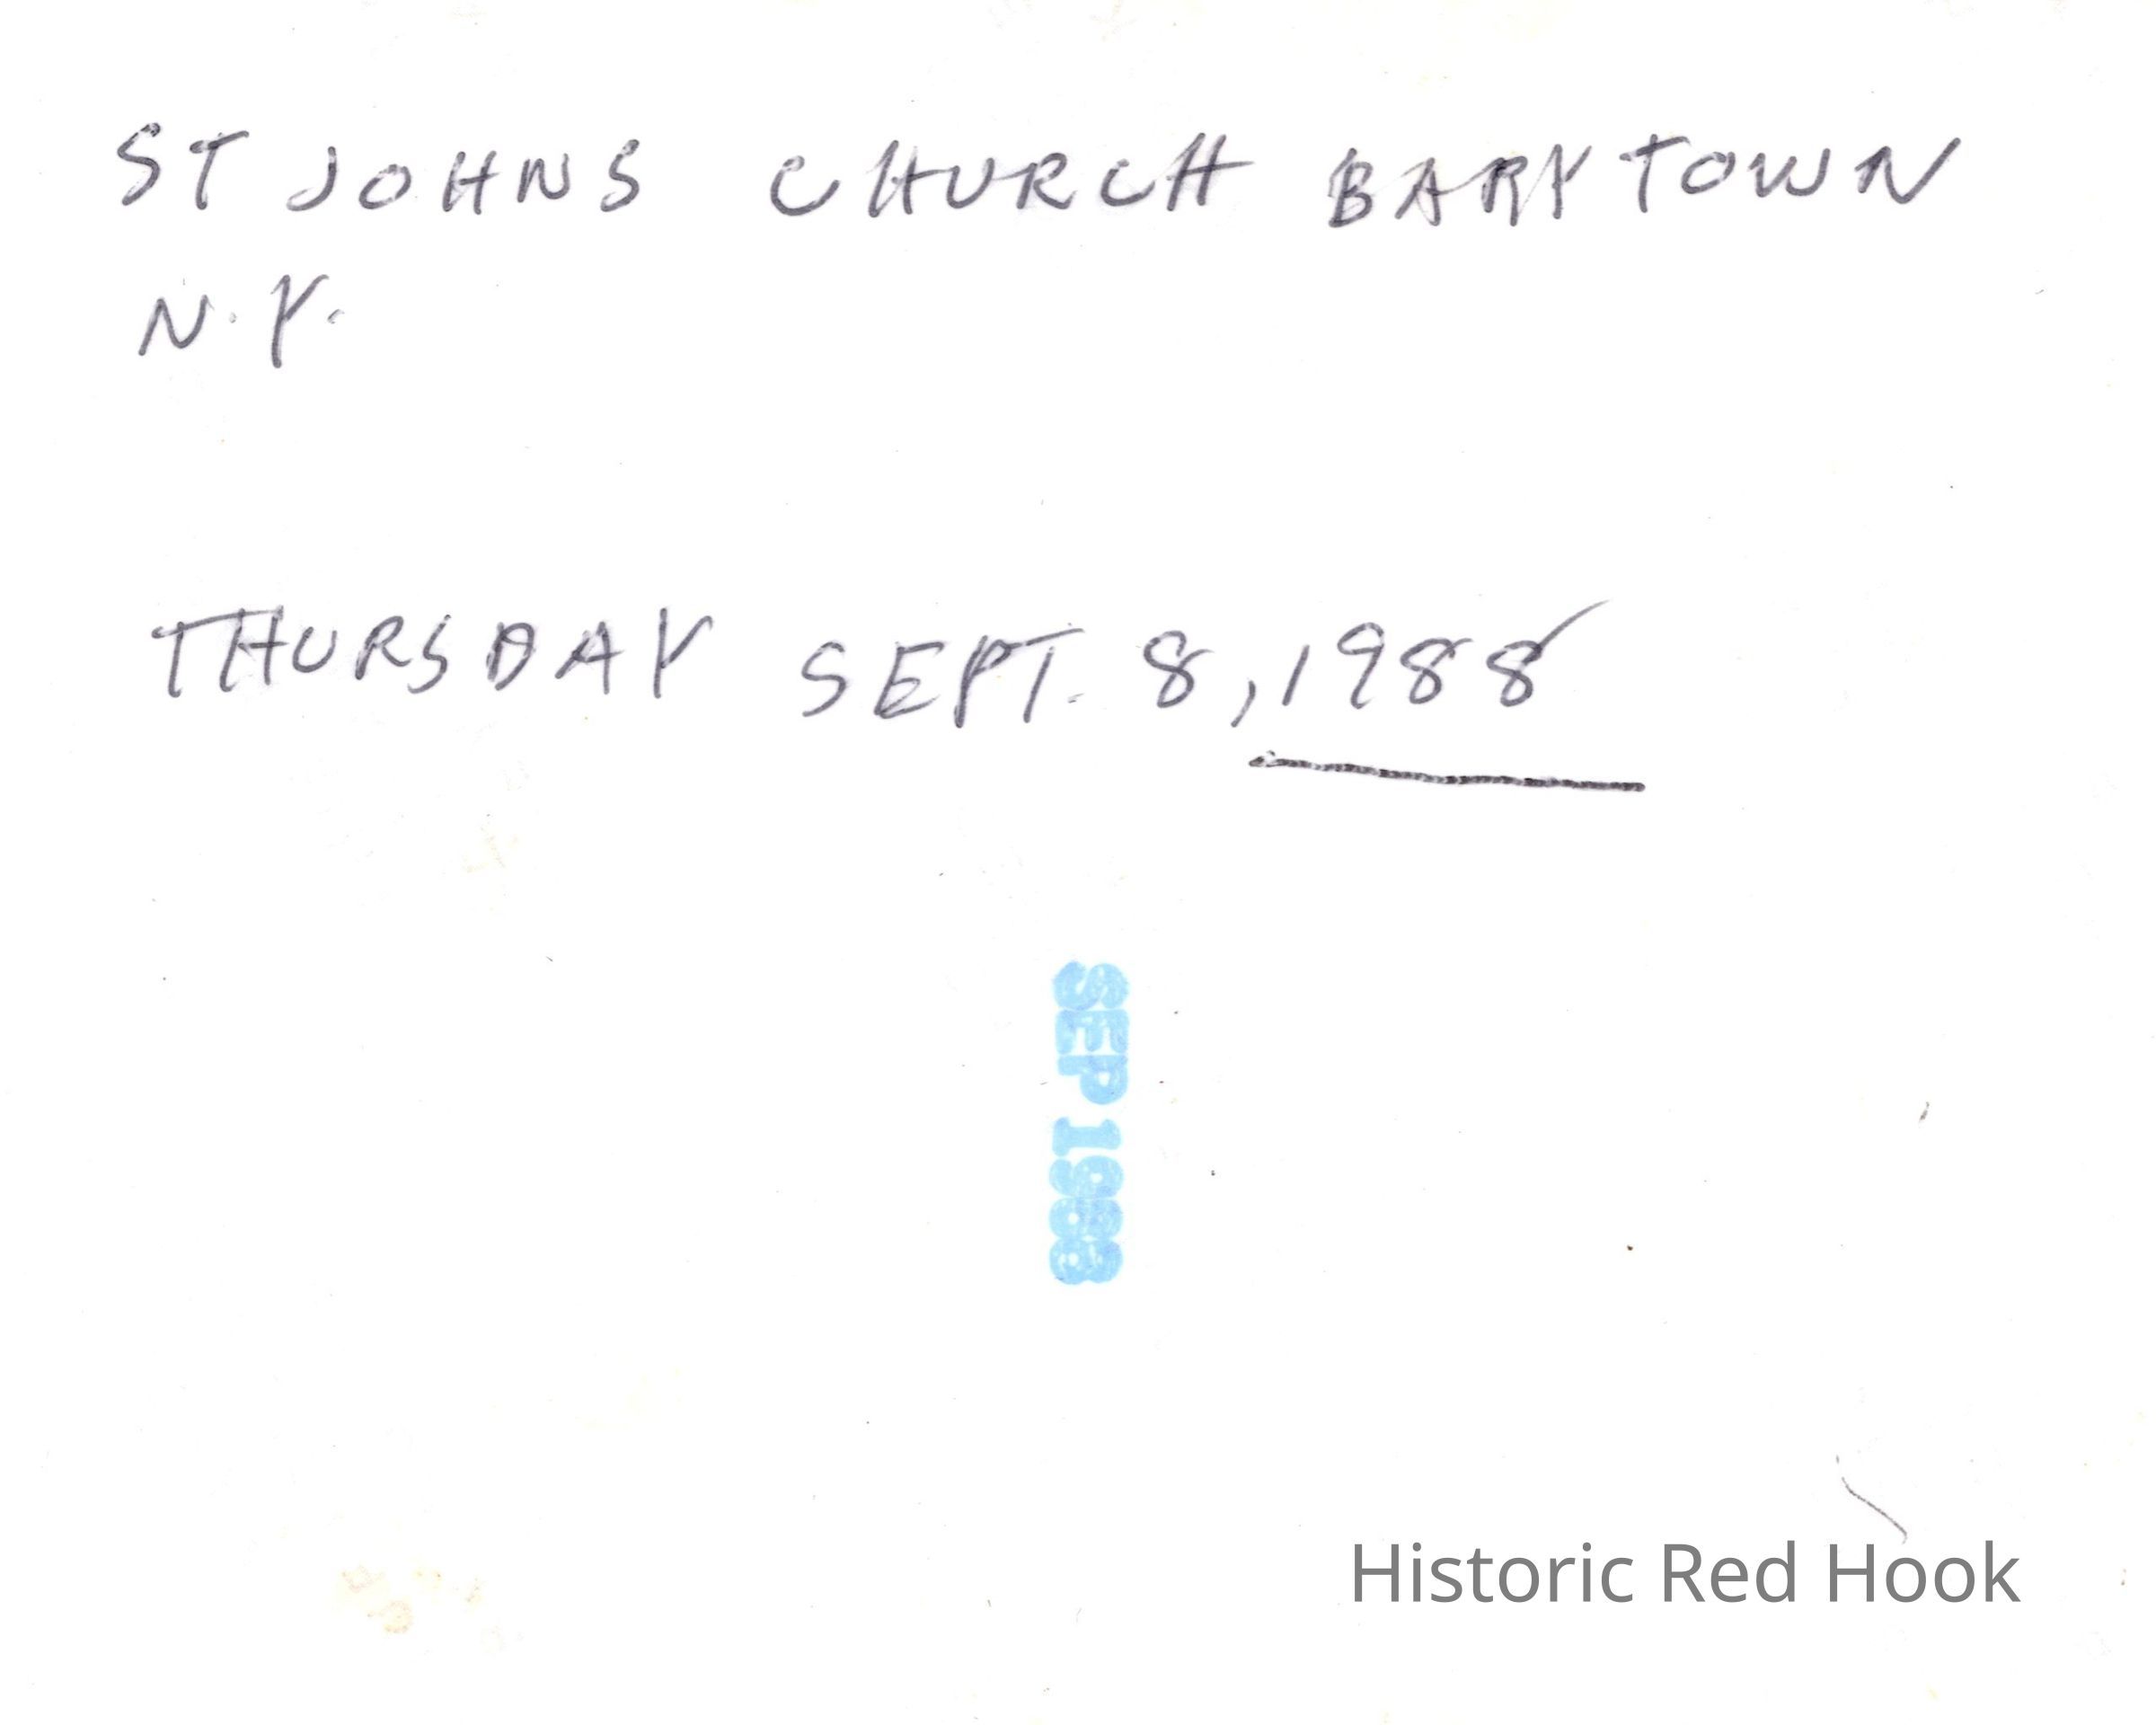 ST JOHNS CHURCH BARYTOWN
N.Y.
THURSDAY SEPT. 8, 1988
SEP 1988
Historic Red Hook